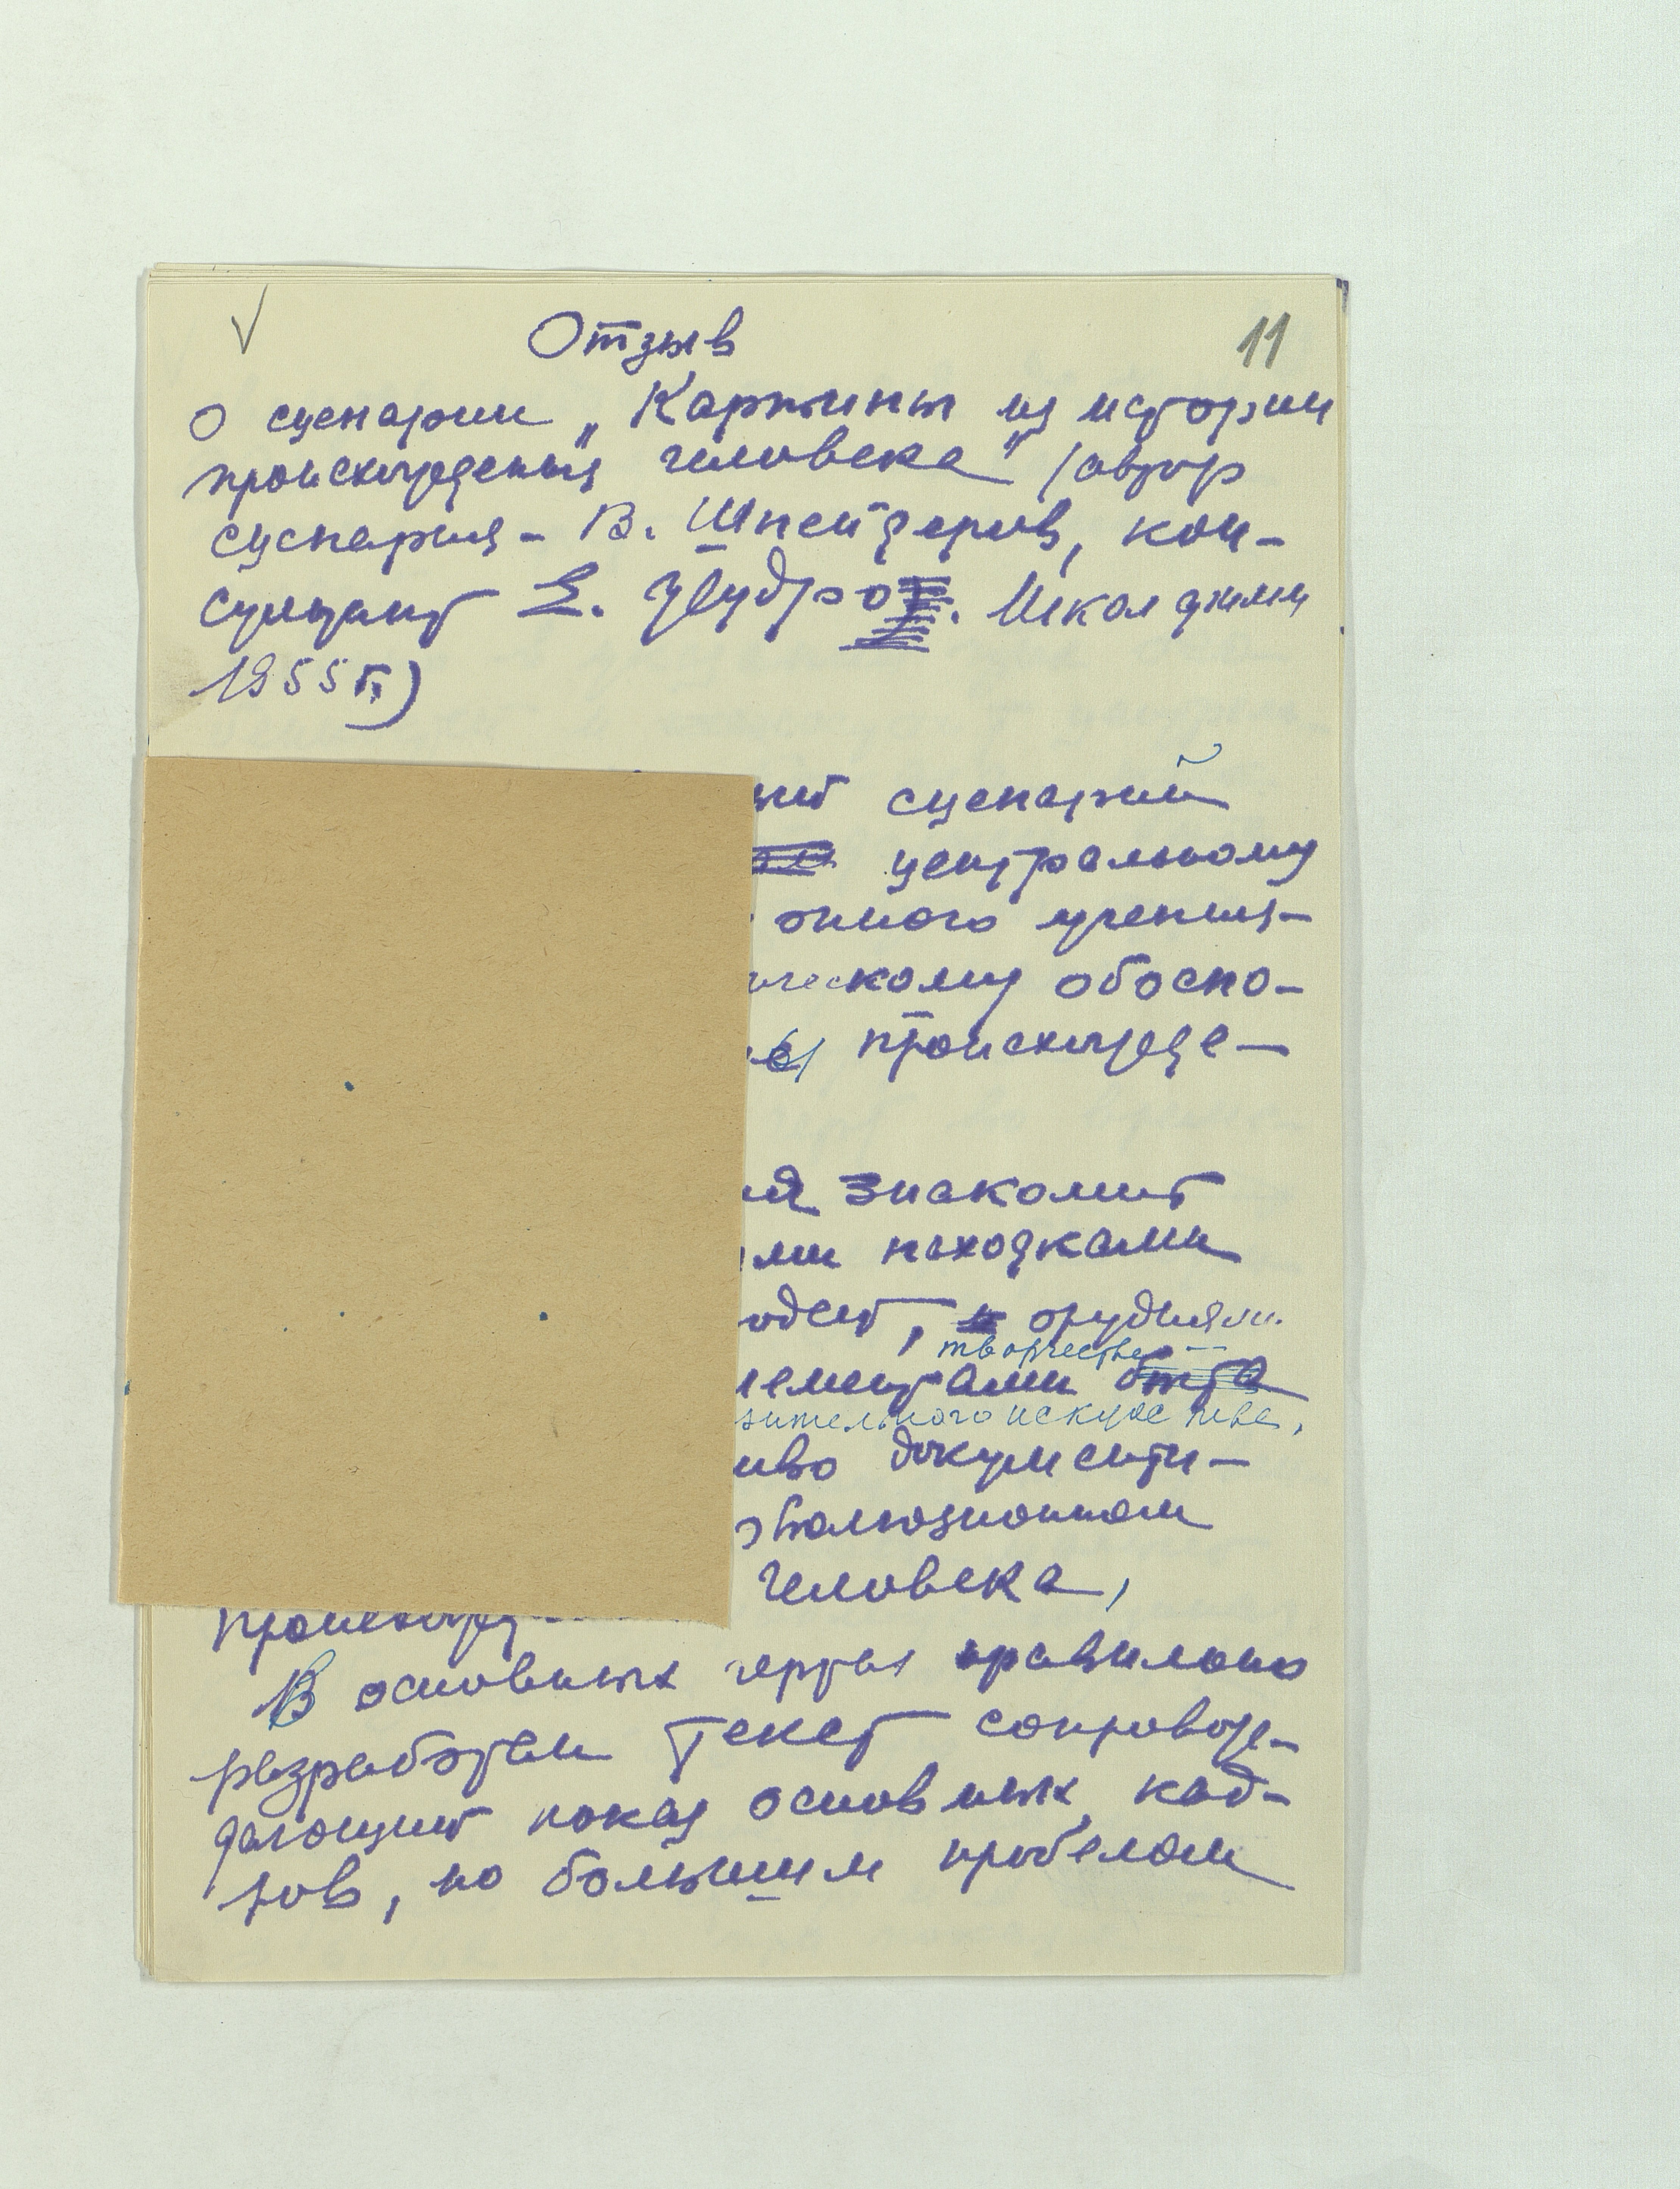 11
Отзыв
О сценарии „Картины из истории
происхождения человека" /автор
сценария - В. Шнейдеров, кон-
сультант Е. . Школфильм
1955 г.)
сценарий
центральному
учения-
ческому обосно-
происхожде-
знакомит
ми находками
, орудиями
творчества
лементами быта
зительного искусства,
иво документи-
эволюционном
человека,
происхожд
В основных чертах правильно
разработан текст сопровож-
дающий показ основных кад-
ров, но большим пробелом